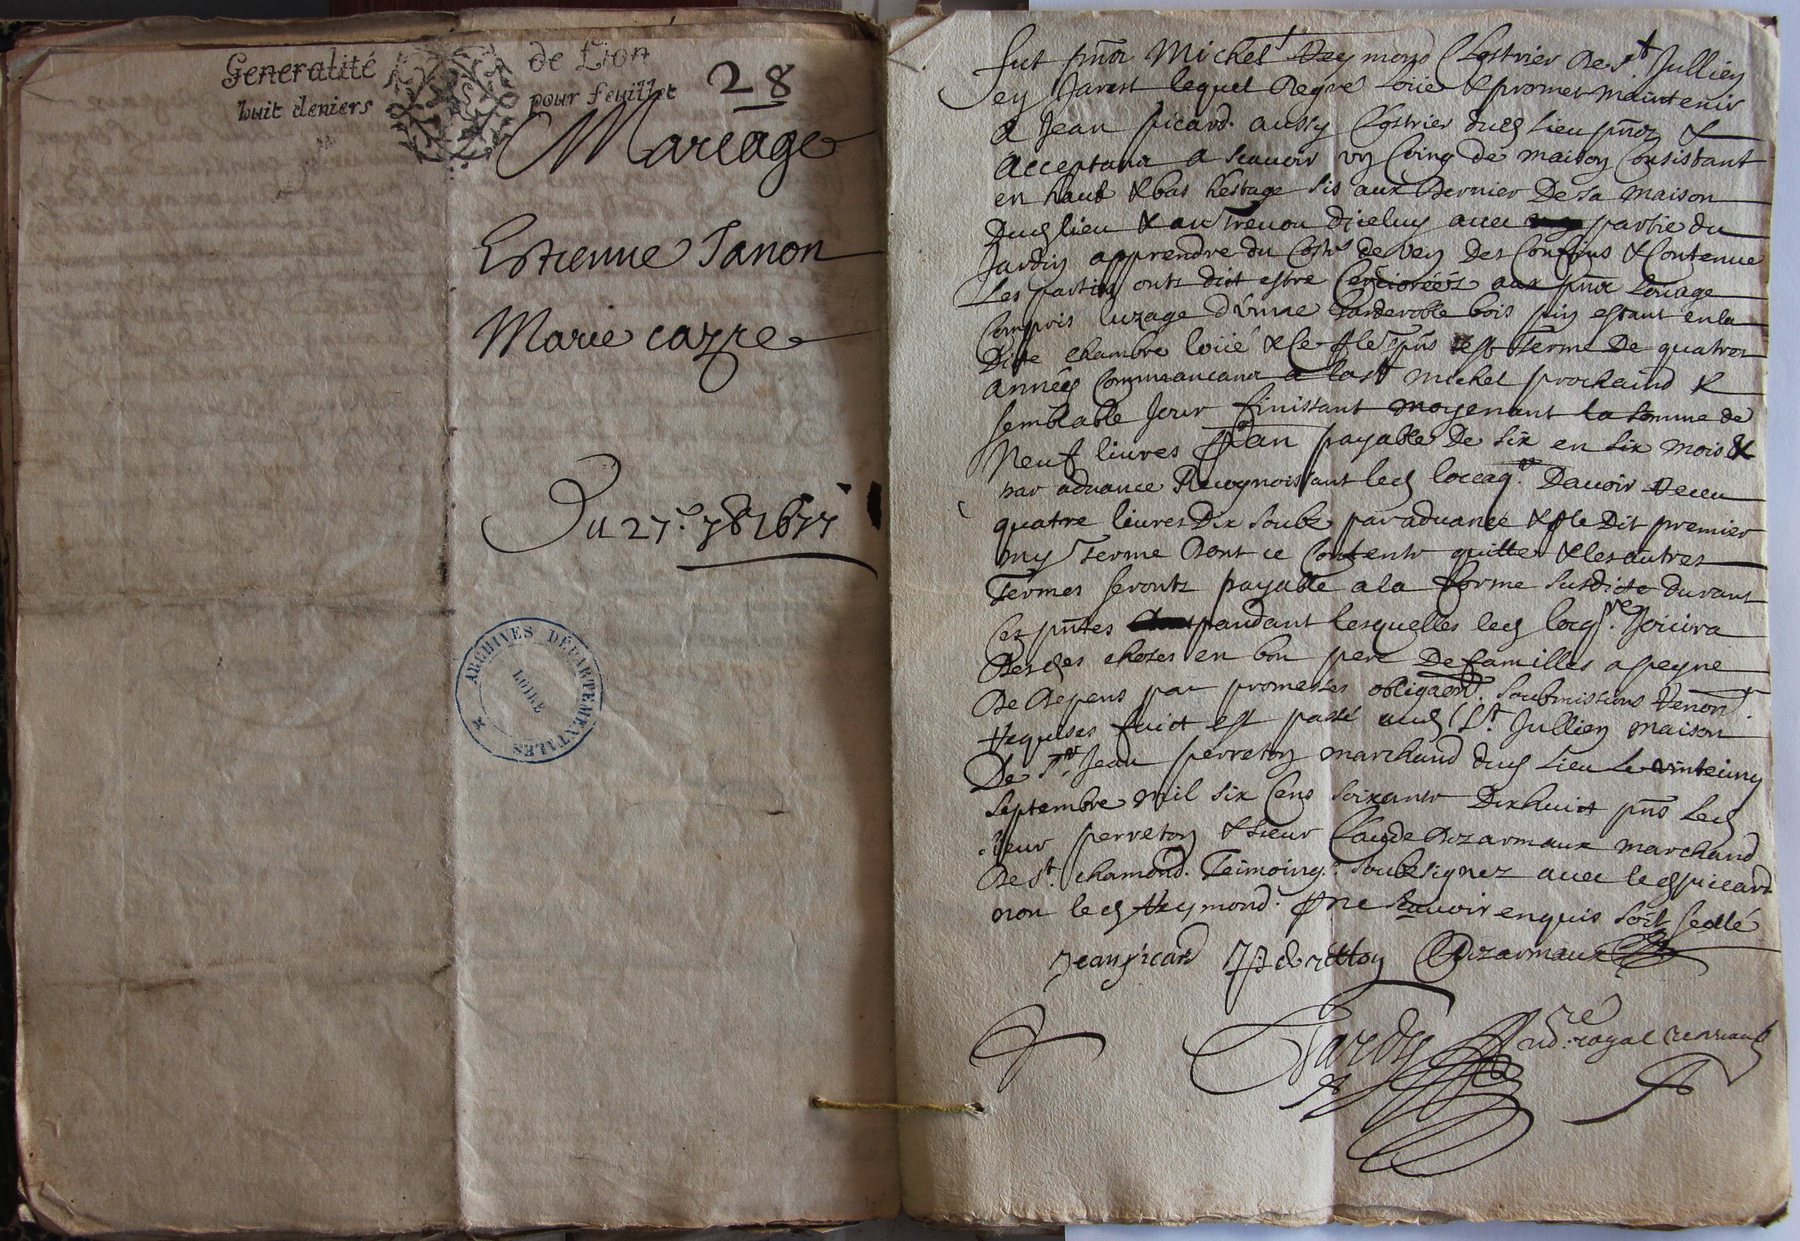 Generalité de Lion
huit deniers pour feuillet
28
Mareage
Estienne Janon
Marie cazre
Du 27.e 7bre 1677
ARCHIVES DÉPARTEMENTALES
LOIRE
fut pnt Michel Reymond Clostrier de St Jullien
en Jarest lequel de gre loüe & promet maintenir
a Jean picard aussy Clostrier dud lieu pnt &
acceptant a scauoir un Coing de maison Consistant
en haut & bas hestage sis aux dernier De sa maison
Dud lieu & au diceluy auec partie du
Jardin apprendre du Costé de Des Confins & Contenue
Les parties ont dit estre Cerciorées aux pnt loüage
Compris luzage d'vnne Garderobbe bois pin estant en la
Ditte chambre loüé & ce terme De quatres
années Commancant a la st michel prochaind &
semblable Jour finissant moyenant la somme de
Neuf liures payable De six en six mois &
par aduance Recognoissant led locaq. Dauoir Receu
quatre liures Dix soubz par aduance & Dit premier
my Terme Dont ce Contente quitte & les autres
Termes seront payable a la forme susdicte durant
Ces pntes pandant lesquelles led locq. Joüira
Desd choses en bon pere De familles a peyne
De Depens par promesses obligaon. soubmissions Renon.
Requises faict est passé aud St. Jullien maison
De Sr Jean perreton marchand dud Lieu Le vinteiung
Septembre mil six Cens soixante Dixhuict pns Led
sieur perreton & sieur Claude Dozarmaux marchand
De St. chamond. Teimoing. soubzsignez auec led piccard
non led Reymond. pne scauoir enquis soit seellé
Jean picard J perretton Dozarmaux
Jardy Nore royal